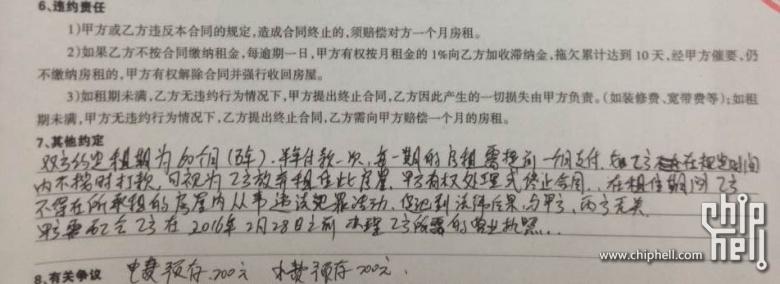 6、违约责任
1)甲方或乙方违反本合同的规定,造成合同终止的,须赔偿对方一个月房租。
2)如果乙方不按合同缴纳租金,每逾期一日,甲方有权按月租金的1%向乙方加收滞纳金,拖欠累计达到10天,经甲方催要,仍
不缴纳房租的,甲方有权解除合同并强行收回房屋。
3)如租期未满,乙方无违约行为情况下,甲方提出终止合同,乙方因此产生的一切损失由甲方负责。(如装修费、宽带费等);如租
期未满,甲方无违约行为情况下,乙方提出终止合同,乙方需向甲方赔偿一个月的房租。
7、其他约定
双方约定租期为60个月(5年).半年付款一次,每一期的房租需提前一个月支付,如乙方在规定时间
内不按时打款,可视为乙方放弃租住此房屋,甲方有权处理或终止合同.在租住期间乙方
不得在所承租的房屋内从事违法犯罪活动,受到法律后果,与甲方,丙方无关
甲方要配合乙方在2016年2月28日之前办理乙方所需的营业执照
8、有关争议 电费预存200元 水费预存200元.
chip
hell
www.chiphell.com